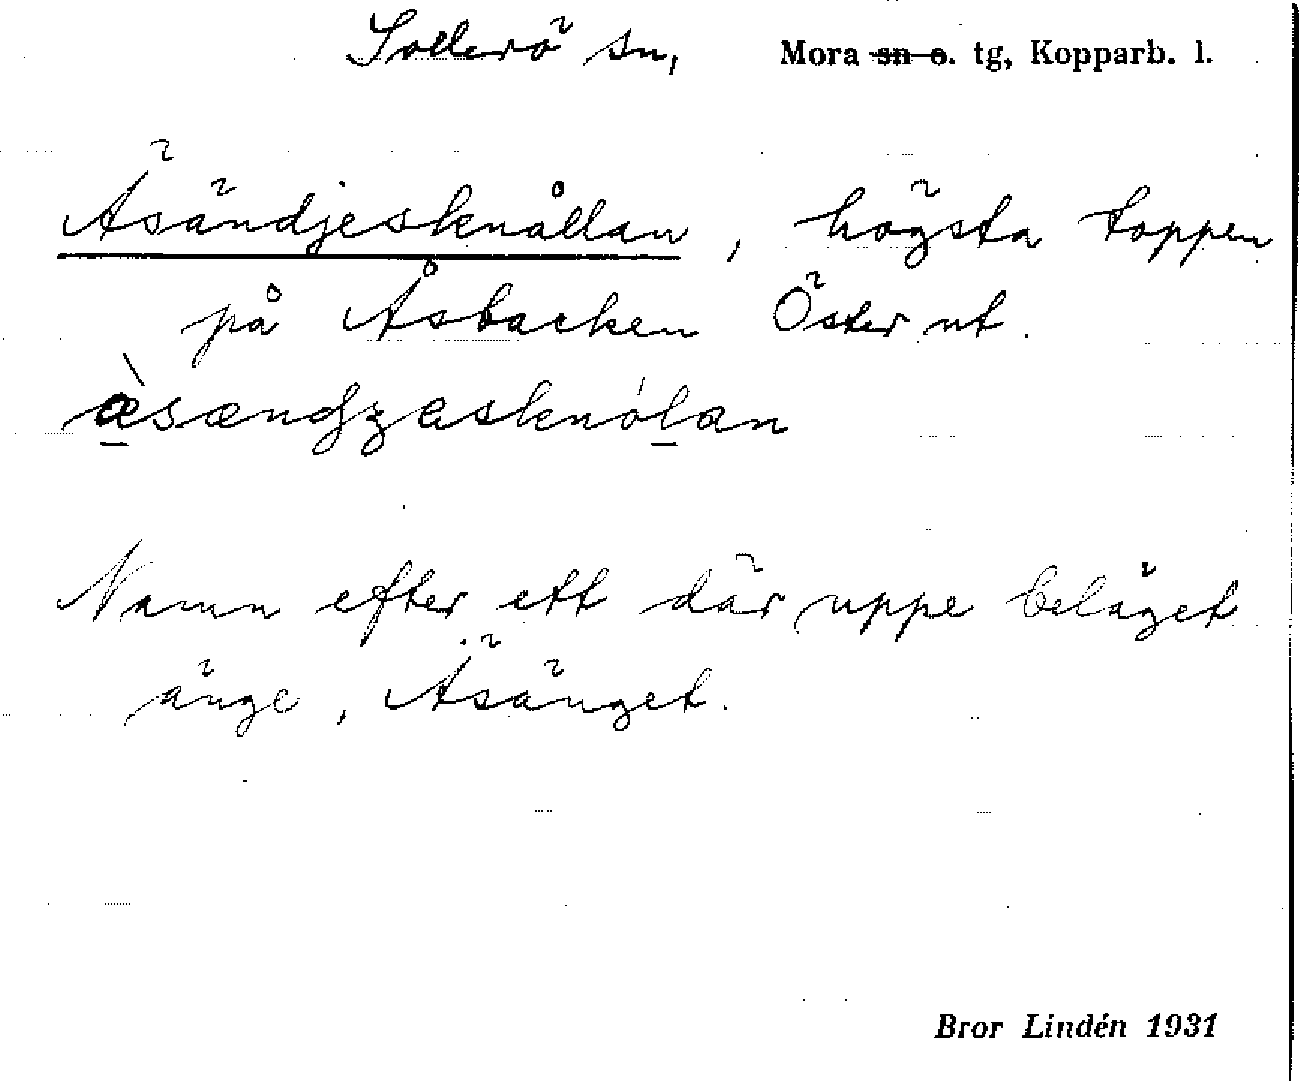 Sollerö sn, Mora sn o. tg, Kopparb. l.
Äsändjesknållan, högsta toppen
på Åsbacken Öster ut.
Namn efter ett där uppe beläget
änge, Äsänget.
Bror Lindén 1931